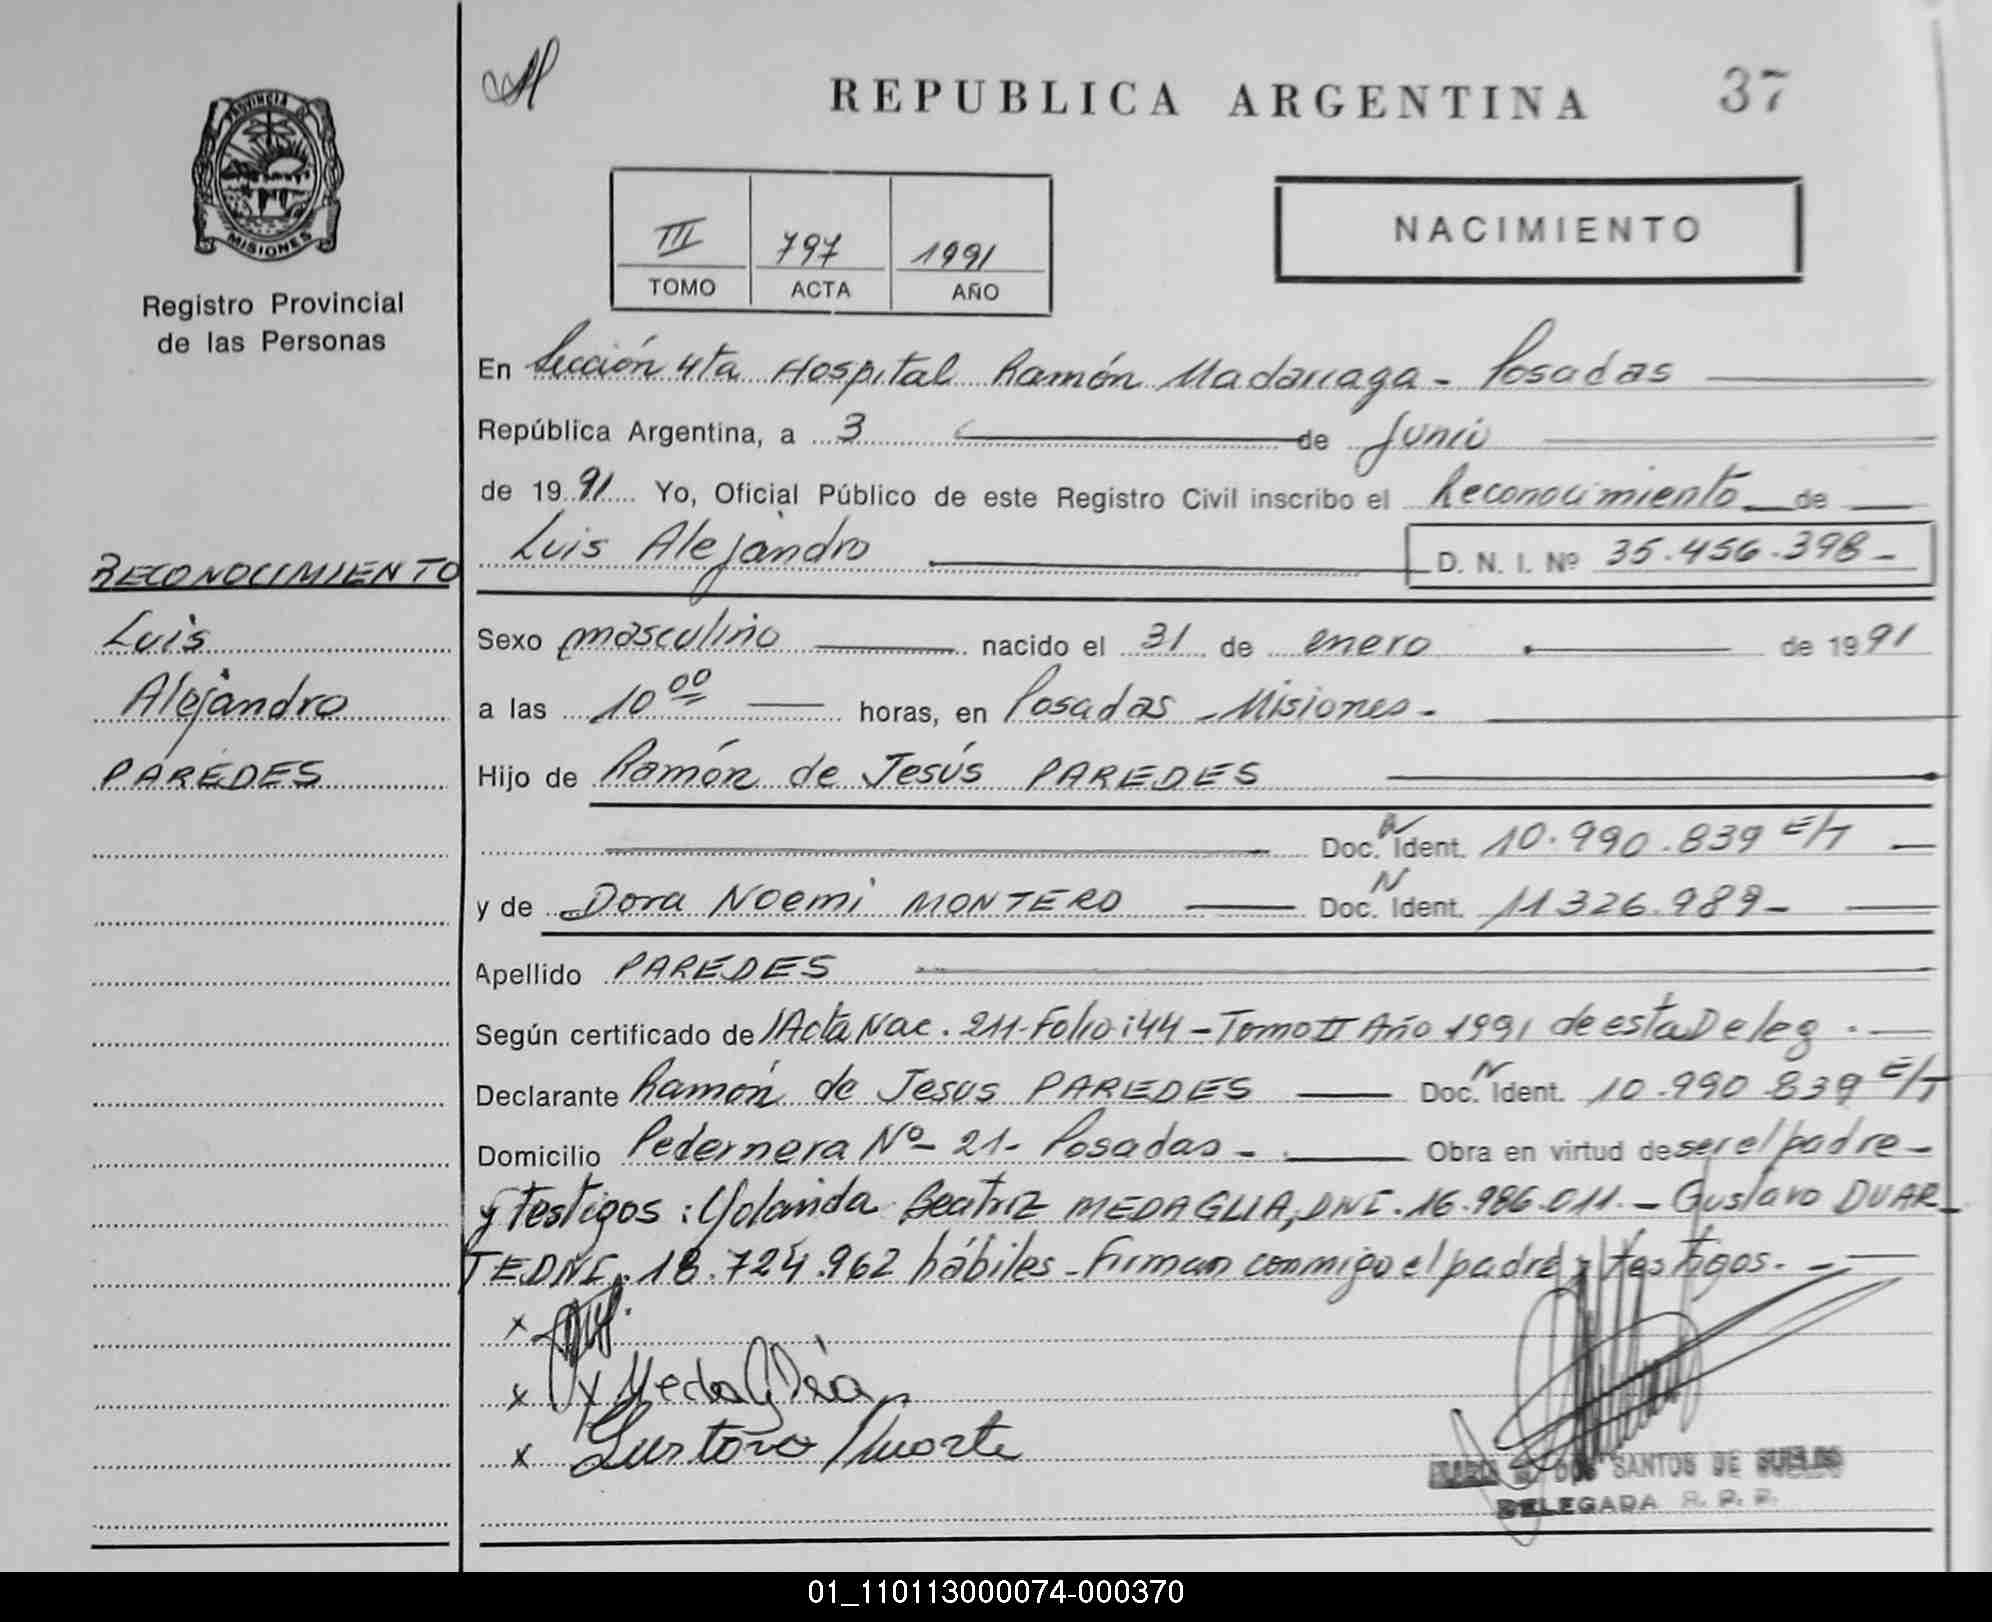 REPUBLICA ARGENTINA
37
PROVINCIA DE
MISIONES
Registro Provincial
de las Personas
III
797
1991
TOMO
ACTA
AÑO
NACIMIENTO
En Sección 4ta Hospital Ramón Madariaga - Posadas
República Argentina, a 3 de Junio
de 1991 Yo, Oficial Público de este Registro Civil inscribo el Reconocimiento de
Luis Alejandro D. N. I. Nº 35.456.398-
RECONOCIMIENTO
Luis
Alejandro
PAREDES
Sexo masculino nacido el 31 de enero de 1991
a las 10 00 horas, en Posadas - Misiones -
Hijo de Ramón de Jesús PAREDES
Doc. N Ident. 10.990.839 E/T
y de Dora Noemi MONTERO Doc. N Ident. 11326.989-
Apellido PAREDES
Según certificado de Acta Nac. 211-Folio:44-Tomo II Año 1991 de esta Deleg.
Declarante Ramón de Jesus PAREDES Doc. N Ident. 10.990.839 E/T
Domicilio Pedernera Nº- 21- Posadas - Obra en virtud de ser el padre -
y testigos: Yolanda Beatriz MEDAGLIA, DNI. 16.986.011. - Gustavo DUAR_
TE DNI. 18.724.962 hábiles - Firman conmigo el padre y testigos. -
x
x Medaglia
x Gustavo Duarte
DOS SANTOS DE
DELEGADA R. P. P.
01_110113000074-000370